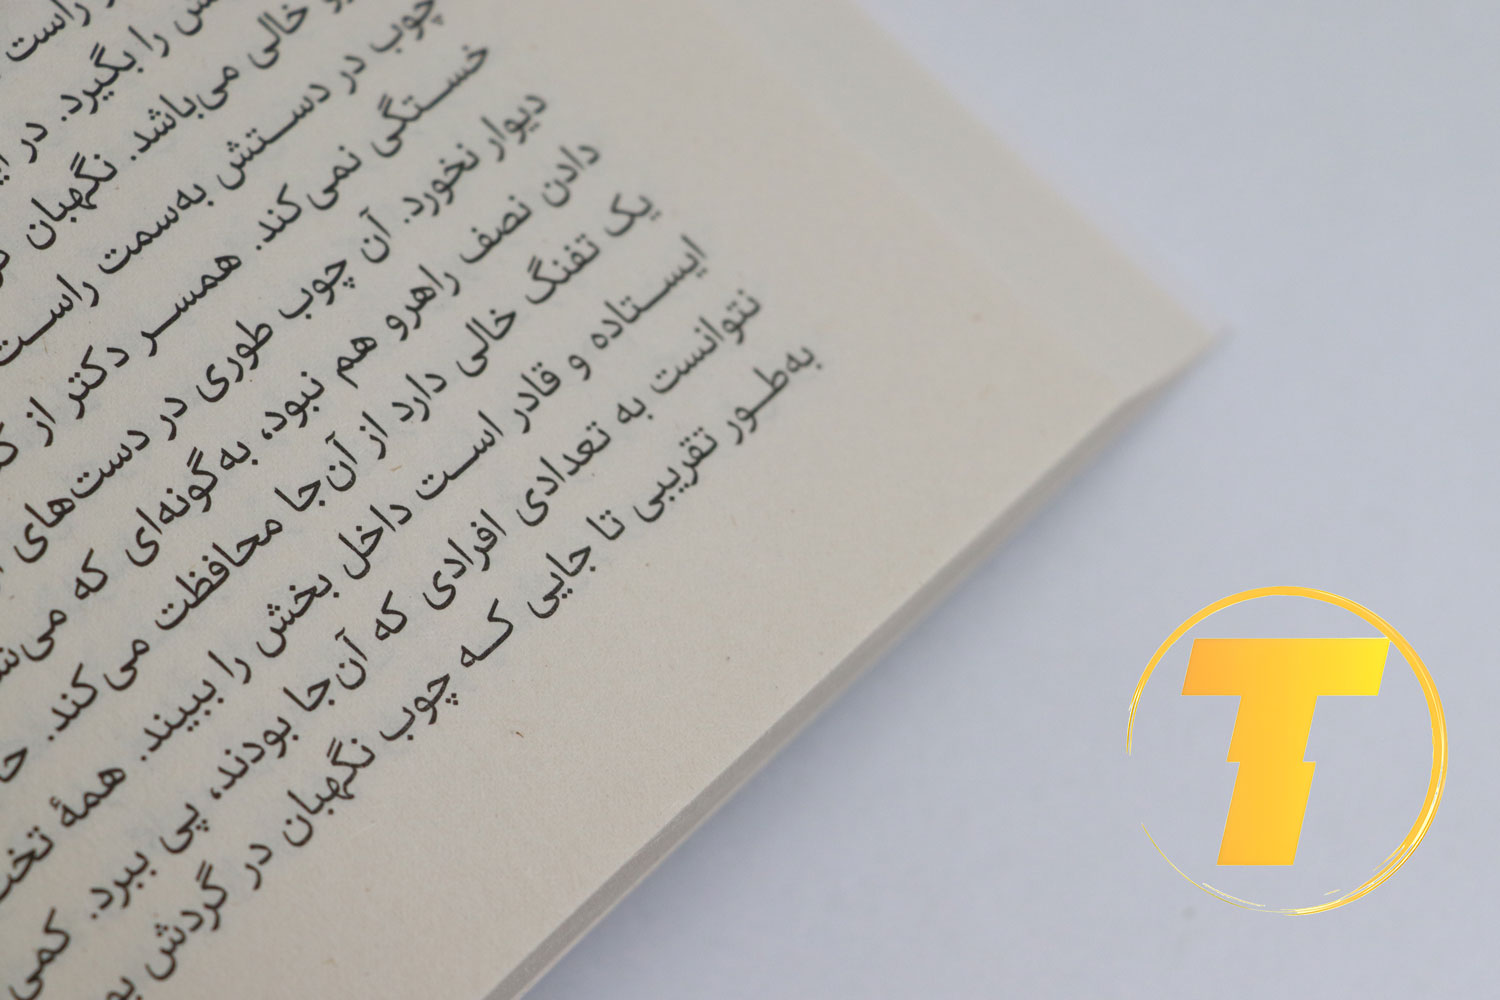 راست
را بگیرد. در
خالی می‌باشد. نگهبان
چوب در دستش به‌سمت راست
خستگی نمی‌کند. همسر دکتر از
دیوار نخورد. آن چوب طوری در دست‌های
دادن نصف راهرو هم نبود، به‌گونه‌ای که
یک تفنگ خالی دارد از آن‌جا محافظت می‌کند.
ایستاده و قادر است داخل بخش را ببیند. همهٔ تخت
نتوانست به تعدادی افرادی که آن‌جا بودند، پی ببرد. کمی
به‌طور تقریبی تا جایی که چوب نگهبان در گردش
T